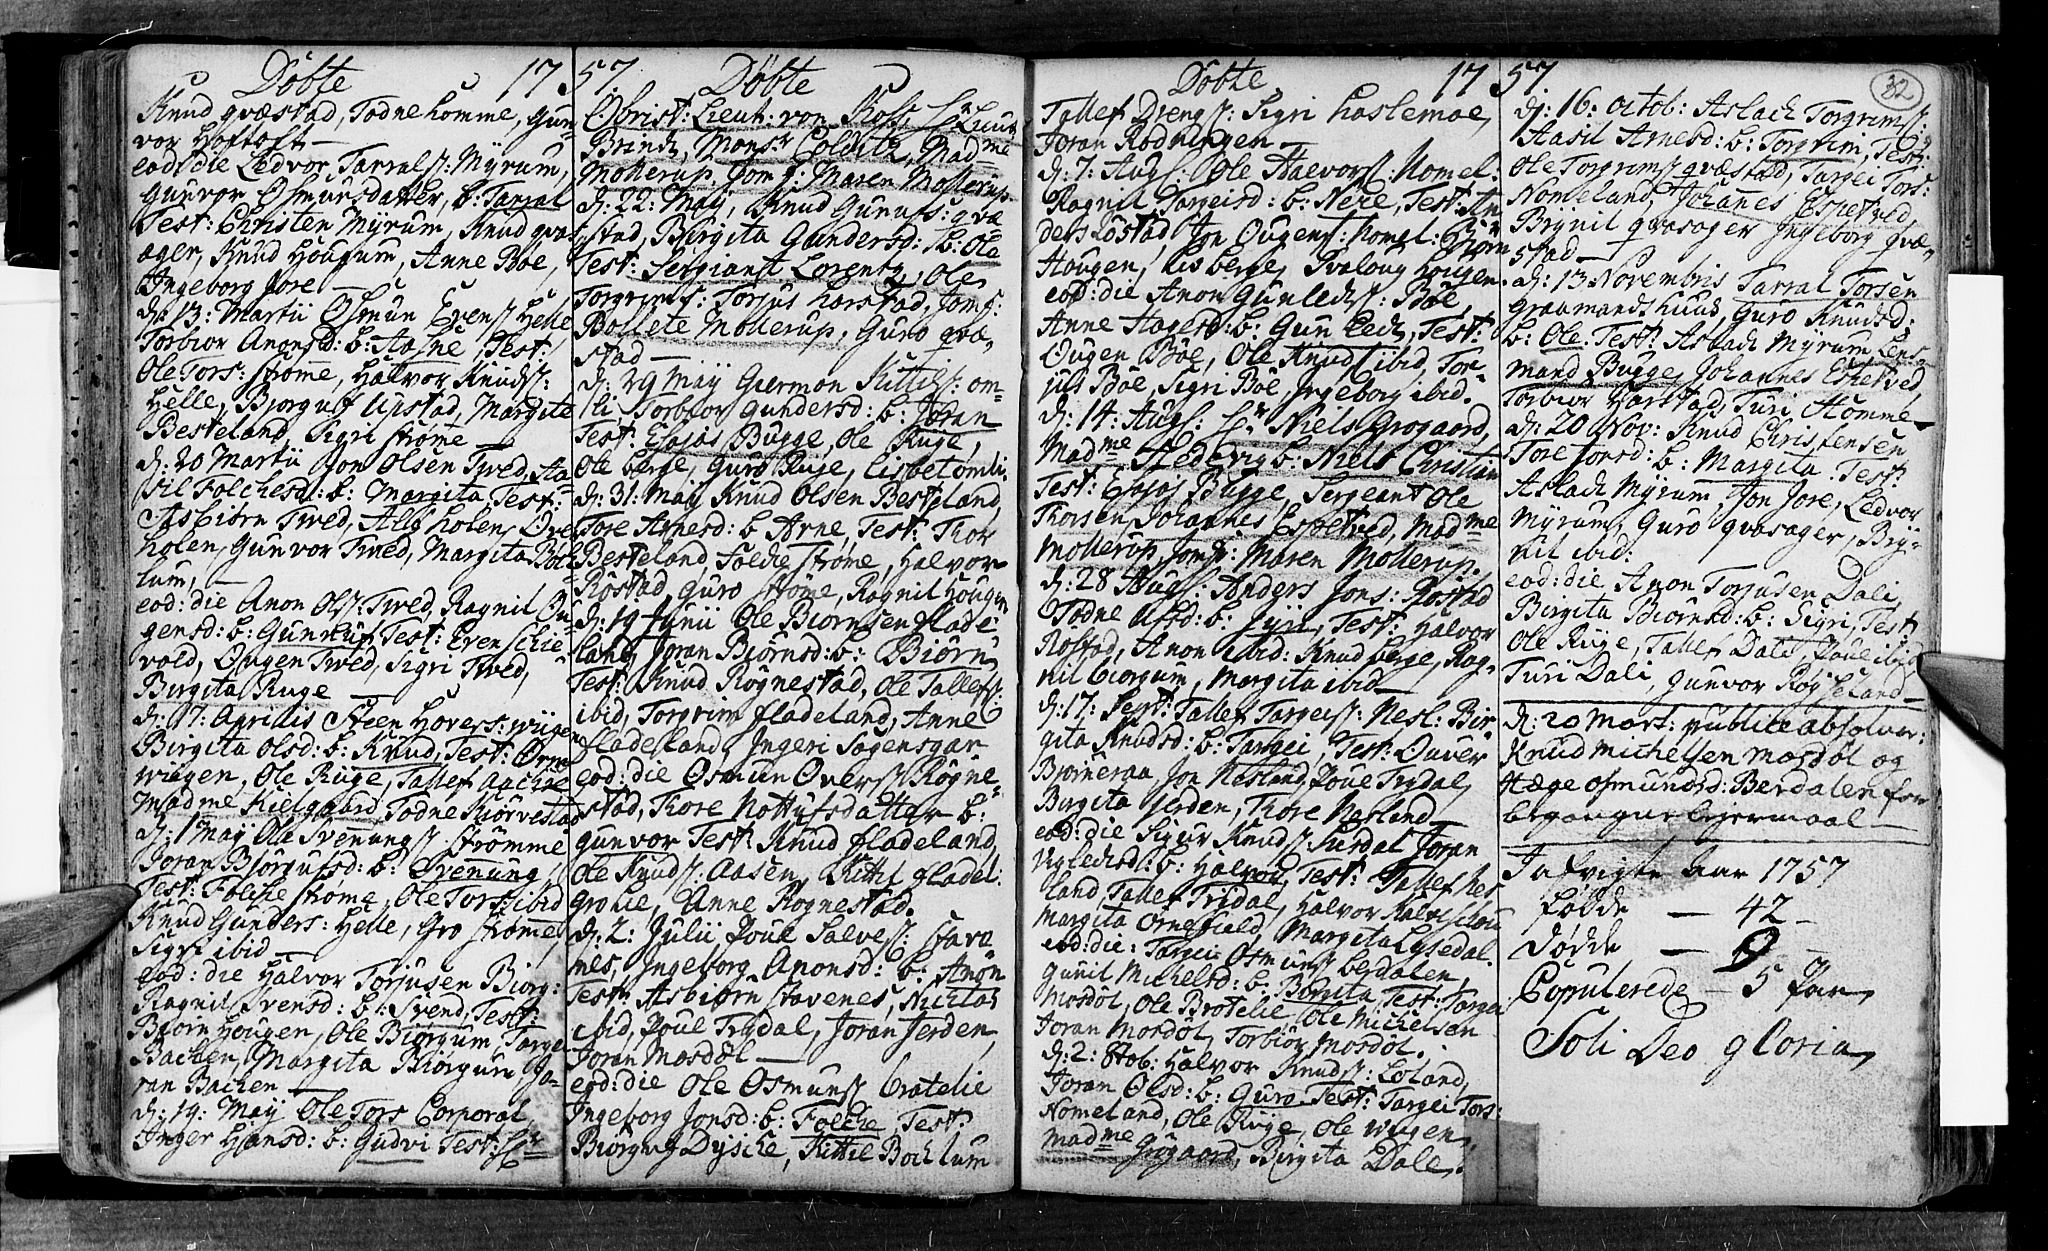 Döbte 17
Knud qvæstad, Todne homme, Gun-
vor Hoftoft —
eod: die Ledvor Tarrals: Myrum,
Gunvor Osmunsdatter, b: Tarral
Test: Christen Myrum, Knud qvas-
ager, Knud Hougum, Anne Boe,
Ingeborg Jore —
d: 13: Martii Osmun Evens: Helle
Torbior Anonsd: b: Aasne, Test:
Ole Tors: Ströme, Halvor Knuds:
Helle, Bjorguf Upstad, Margite
Besteland, Sigri ströme —
d: 20 Martii Jon Olsen Tved, Aa-
sil Folchesd: b: Margita Test:
Asbiörn Tved, Alf holen, Ove
holen, Gunvor Tved, Margita Boch-
lum, —
eod: die Anon Ols: Tved, Ragnil Ou-
gensd: b: Gunluf, Test: Even Schie-
vold, Ougen Tved, Sigri Tved,
Birgita Ruge —
d: 17: Aprilis Steen Hovers: wiigen
Birgita Olsd: b: Knud, Test: Orm
wiigen, Ole Ruge, Tallef Aachre
Madme Kielgaard, Todne Kiörvestad
d: 1 May Ole Svennungs: Strömme
Joran Bjorgufsd: b: Svennung,
Test: Folche ströme, Ole Tors: ibid
Knud Gunders: Helle, Gro ströme
Sigri ibid —
eod: die Halvor Torjusen Biorg:
Ragnil Svensd: b: Svend, Test:
Biörn Hougen, Ole Biorgum, Targe
Bachen, Margita Biörgum Jo-
ran Bachen —
d: 19: May Ole Tors Corporal
Inger Hansd: b: Gudvi Test: Hr
57 Döbte
Obrist: Lieut: von Koss, Hr Leut:
Brandt, Monsr Colditz, Madme
Mollerup, Jomf: Maren Mollerup
d: 22: May, Knud Gunufs: qvæ
stad, Birgita Gundersd: b: Ole
Test: Sergiant Lorentz, Ole
Torgrims: Torjus harstad, Jomf:
Bollete Mollerup, Guro qvæ,
stad —
d: 29 May Germon Kittils: om-
li Torbior Gundersd: b: Joran
Test: Esaias Bugge, Ole Ruge,
Ole berge, Guro Ruge, Lisbet ömli.
d: 31: May Knud Olsen Besteland,
Tore Arnesd: b Arne, Test: Thor
Besteland, Folche ströme, Halvor
Röstad, Guro ströme, Ragnil Hougen
d: 19 Junii Ole Biornsen flade
land, Joran Biörnsd: b: Biörn
Test: Knud Rögnestad, Ole Tallefs:
ibid, Torgrim fladeland, Anne
fladeland, Ingeri Sogensgar
eod: die Osmun Overs: Rögne-
stad, Thore Nottufsdatter b:
Gunvor Test: Knud fladeland,
Ole Knuds: Aasen, Kittil fladel:
Gro lie, Anne Rognestad.
d: 2: Julii Poul Salves: stave
nes, Ingeborg Anonsd: b: Anön
Test: Asbiörn stavenes, Nichlas
ibid, Poul Trydal, Joran Jerden,
Joran Mosdöl —
eod: die Ole Osmuns: Bratelie
Ingeborg Jonsd: b: Folche, Test:
Biorguf Dysche, Kittil Bochlum
Döbte 17
Tallef Drengs: Sigri haslemoe,
Joran Rodningen —
d: 7: Augs: Ole Halvors: Nomel:
Ragnil Targeisd: b: Nere, Test: An
ders Löstad, Jon Ougens: Nomel: Biörn
Hougen, Lis berge, Svaloug Hougen.
eod: die Anon Gunleds: Böe,
Anne Hagesd: b: Gun Lech, Test:
Ougen Böe, Ole Knuds: ibid, Tor-
jus Böe, Sigri Böe, Ingeborg ibid.
d: 14: Augs: Hr Niels Grogaard,
Madme Hedevig b: Niels Christian
Test: Esaias Bugge, Sergeant Ole
Thorsen, Johannes Espetved, Madme
Mollerup, Jomf: Maren Mollerup.
d: 28 Augs: Anders Jons: Rostad
Todne Alfsd: b: Jyri, Test: Halvor
Rostad, Anon ibid: Knud berge, Rag-
nil biorgum, Margita ibid —
d: 17: Sept: Tallef Targeis: Nesl: Bir-
gita Knudsd: b: Targei, Test: Ouver
Bjorneraa, Jon Nesland, Poul Trydal,
Birgita Jerden, Thore Nesland
eod: die Sigur Knuds: Rusdal Joran
Vigledisd: b: Halvor, Test: Tallef Nes
land, Tallef Tridal, Halvor
Margita Ornefield, Margita Lysedal.
eod: die: Targei Osmuns: berdalen,
Gunil Michelsd: b: Birgita, Test: Targe
Mosdöl, Ole Bratelie Ole Michelsen
Joran Mosdöl, Torbiör Mosdöl.
d: 2: 8tob: Halvor Knuds: Loland,
Joran Olsd: b: Guro Test: Targei Tors:
Nomeland, Ole Ruge, Ole Wiigen,
Madme Grogaard, Birgita Dale.
57
32
d: 16: octob: Aslach Torgrims:
Aasil Arnesd: b: Torgrim, Test:
Ole Torgrims: qvæstad, Targei Tors:
Nomeland, Johannes Espetved,
Brynil qvasager Ingeborg qvæ,
stad —
d: 13 Novembris Tarral Torsen
Graamandshuud, Guro Knudsd:
b: Ole. Test: Aslach Myrum, Lens-
mand Bugge, Johannes Espetved
Torbior Harstad, Turi Homme —
d: 20 Nov: Knud Christensen
Tore Jonsd: b: Margita. Test:
Aslach Myrum, Jon Jore, Ledvor
Myrum, Guro qvasager, Bry-
nil ibid:
eod: die Anon Torjusen Dali
Birgita Biörnsd: b: Sigri, Test:
Ole Ruge, Tallef Dali, Poul ibid
Turi Dali, Gunvor Röyseland —
d: 20 Mart: publice absolver:
Knud Michelsen Mosdöl og
Hæge Osmundsd: Berdalen for
begangne Leiermaal —
I afvigte Aar 1757
födde — 42 —
Dödde — 9 —
Copulerede — 5 Par,
Soli Deo gloria,